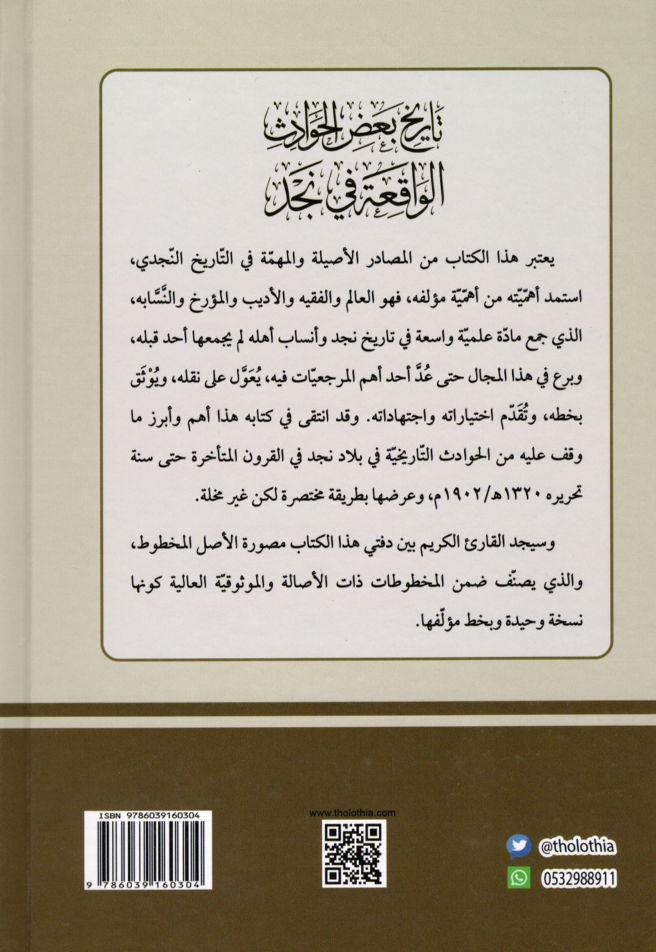 تاريخ بعض الحوادث
الواقعة في نجد
يعتبر هذا الكتاب من المصادر الأصيلة والمهمّة في التّاريخ النّجدي،
استمد أهمّيّته من أهمّيّة مؤلفه، فهو العالم والفقيه والأديب والمؤرخ والنَّسَّابه،
الذي جمع مادّة علميّة واسعة في تاريخ نجد وأنساب أهله لم يجمعها أحد قبله،
وبرع في هذا المجال حتى عُدَّ أحد أهم المرجعيّات فيه، يُعَوَّل على نقله، ويُوْثَق
بخطه، وتُقَدّم اختياراته واجتهاداته. وقد انتقى في كتابه هذا أهم وأبرز ما
وقف عليه من الحوادث التّاريخيّة في بلاد نجد في القرون المتأخرة حتى سنة
تحريره ١٣٢٠هـ/١٩٠٢م، وعرضها بطريقة مختصرة لكن غير مخلة.
وسيجد القارئ الكريم بين دفتي هذا الكتاب مصورة الأصل المخطوط،
والذي يصنّف ضمن المخطوطات ذات الأصالة والموثوقيّة العالية كونها
نسخة وحيدة وبخط مؤلّفها.
ISBN 9786039160304
9 786039 160304
www.tholothia.com
@tholothia
0532988911